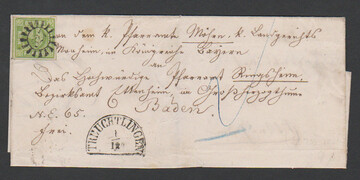 Von dem k. Pfarramte Möhren k. Landgerichts
Monheim, im Königreiche Bayern
an
Das Hochwürdige Pfarramt Ringsheim,
Bezirksamt Ettenheim, im Großherzogthum
Baden.
N.E. 65.
frei.
TREUCHTLINGEN
1
12